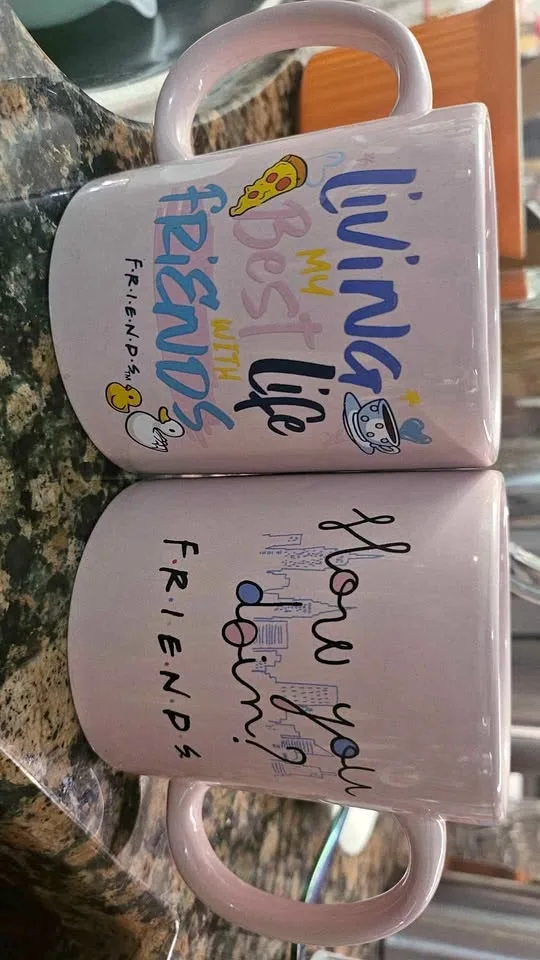 LIVING
MY
Best Life
WITH
FRIENDS
F·R·I·E·N·D·S™
How you
doin?
F·R·I·E·N·D·S